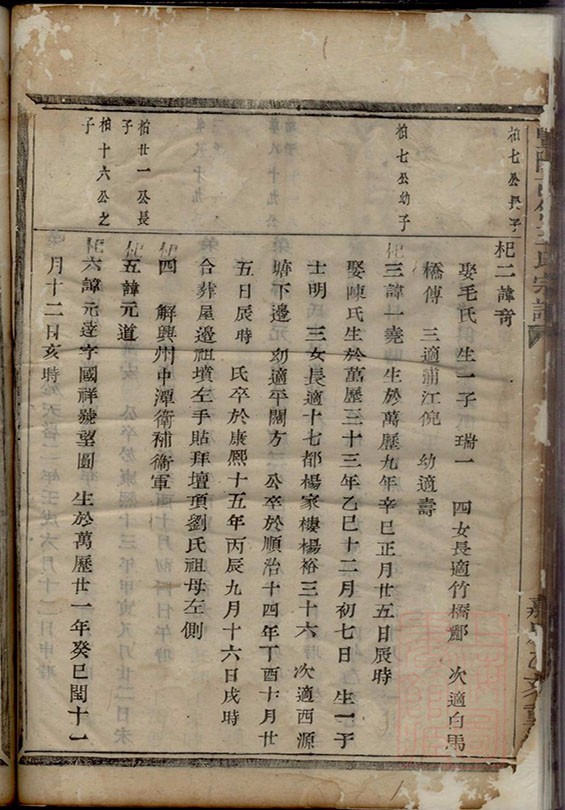 柏七公長子
杞二諱奇
娶毛氏 生一子 瑞一 四女長適竹橋酈 次適白馬
橋傅 三適蒲江倪 幼適壽
柏七公幼子
杞三諱一堯 生於萬歷九年辛巳正月廿五日辰時
娶陳氏生於萬歷三十三年乙巳十二月初七日 生一子
士明 三女長適十七都楊家樓楊裕三十六 次適西源
塘下邊 幼適平闊方 公卒於順治十四年丁酉十月廿
五日辰時 氏卒於康熙十五年丙辰九月十六日戌時
合葬屋邊祖墳左手貼拜壇頂劉氏祖母左側
杞四 解興州中潭衛補衛軍
柏廿一公長子
杞五諱元道
柏十六公之子
杞六諱元達字國祥號望圓 生於萬歷廿一年癸巳閏十一
月十二日亥時